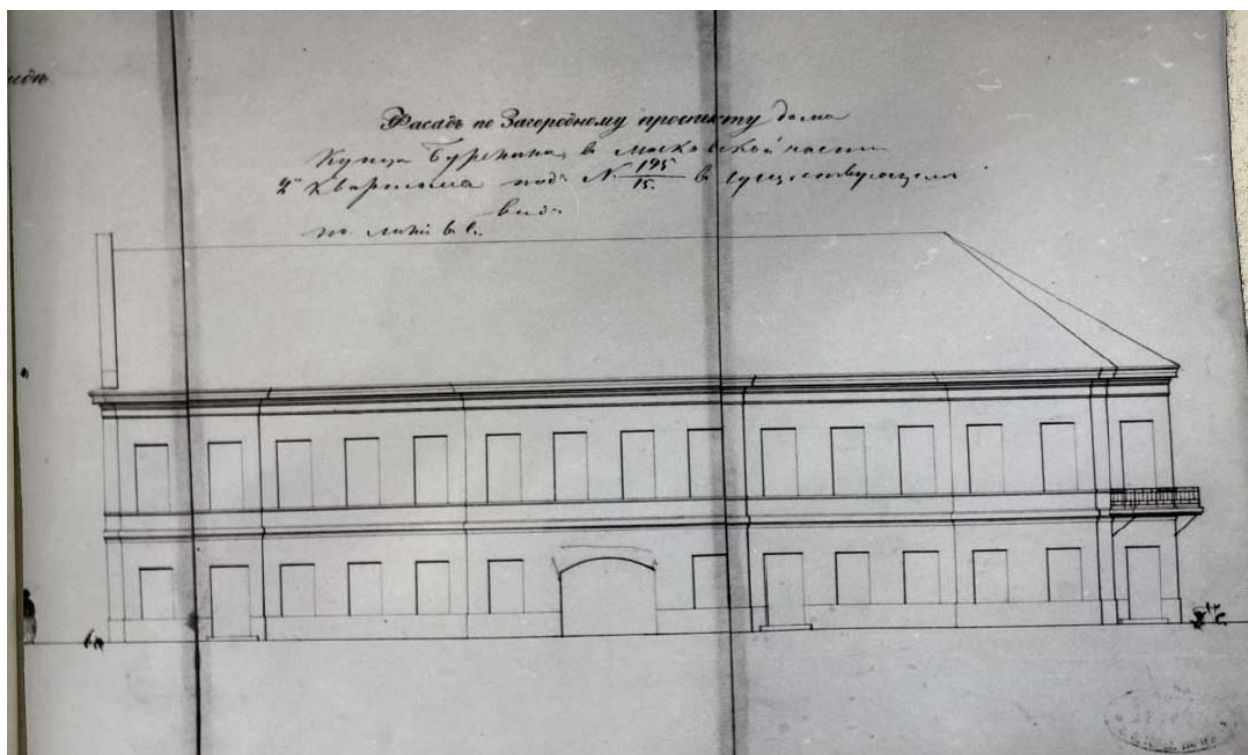 Фасадъ по Загородному проспекту дома
Купца Буренина, в Московской части
2го квартала подъ № 195/15. в существующемъ
видѣ
по лит: в с.